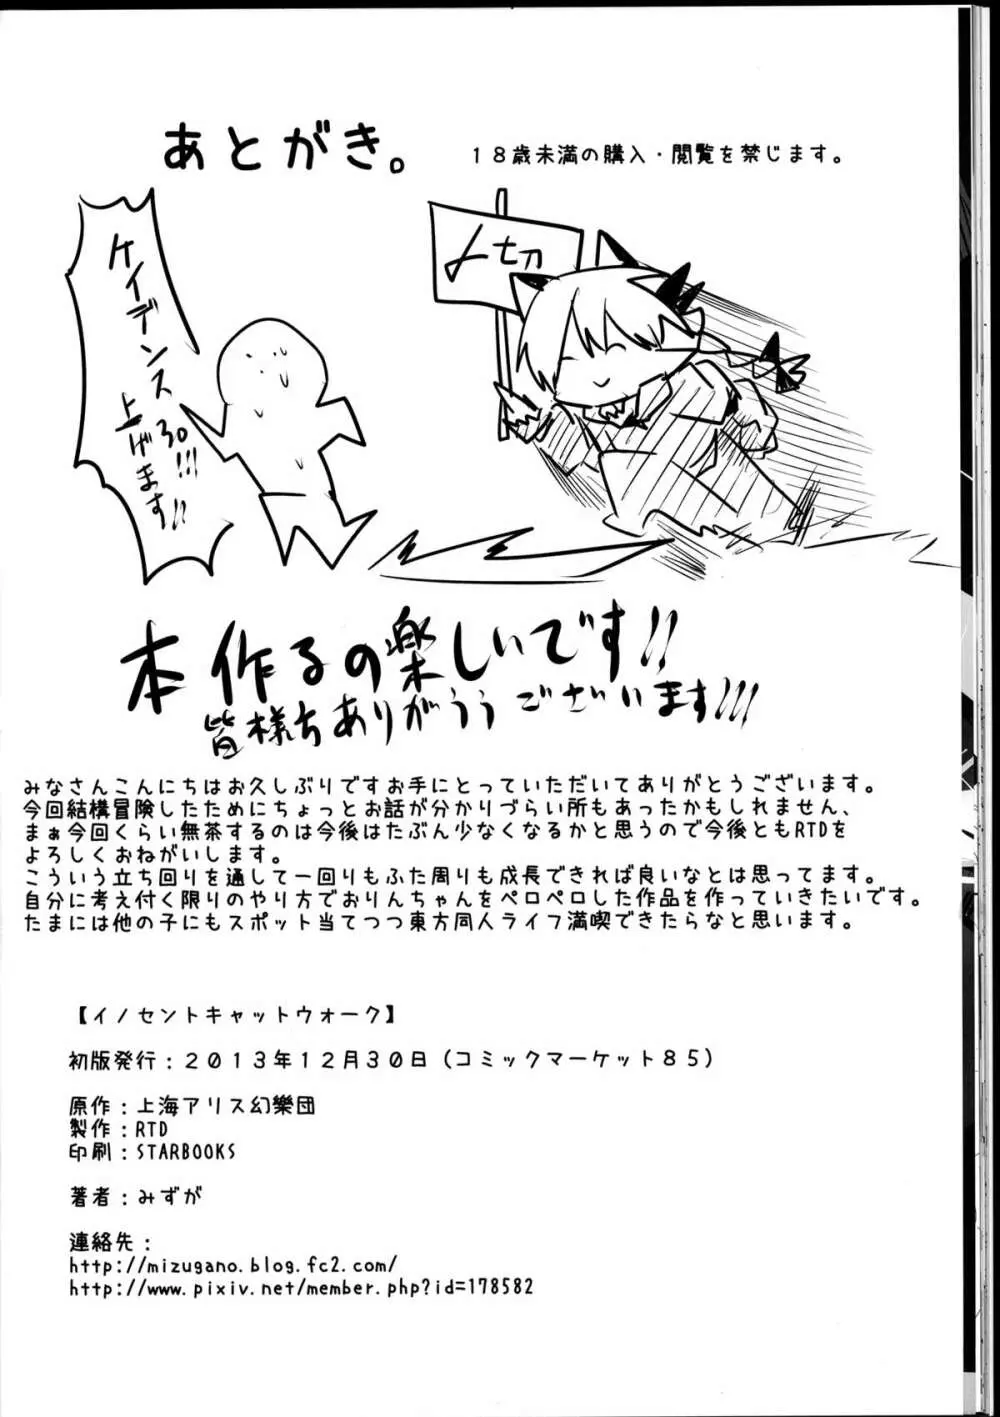 あとがき。
18歳未満の購入・閲覧を禁じます。
〆切
ケイデンス30!!!
上げます!!
本作るの楽しいです!!
皆様ちありがううございます!!!
みなさんこんにちはお久しぶりですお手にとっていただいてありがとうございます。
今回結構冒険したためにちょっとお話が分かりづらい所もあったかもしれません、
まぁ今回くらい無茶するのは今後はたぶん少なくなるかと思うので今後ともRTDを
よろしくおねがいします。
こういう立ち回りを通して一回りもふた周りも成長できれば良いなとは思ってます。
自分に考え付く限りのやり方でおりんちゃんをペロペロした作品を作っていきたいです。
たまには他の子にもスポット当てつつ東方同人ライフ満喫できたらなと思います。
【イノセントキャットウォーク】
初版発行：2013年12月30日（コミックマーケット85）
原作：上海アリス幻樂団
製作：RTD
印刷：STARBOOKS
著者：みずが
連絡先：
http://mizugano.blog.fc2.com/
http://www.pixiv.net/member.php?id=178582